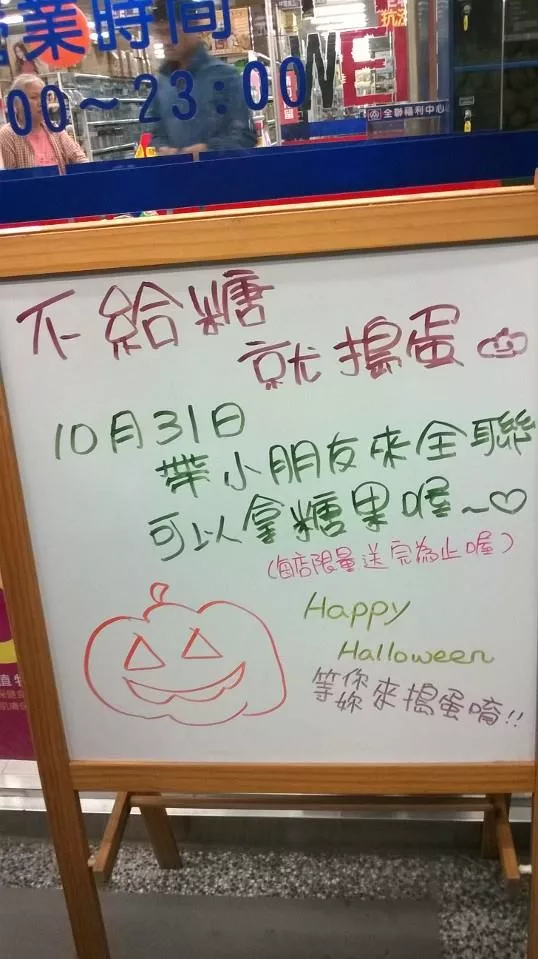 營業時間
00～23:00
W
抗漲
全聯福利中心
不給糖
就搗蛋
10月31日
帶小朋友來全聯
可以拿糖果喔~♡
(每店限量送完為止喔)
Happy
Halloween
等你
妳來搗蛋唷!!